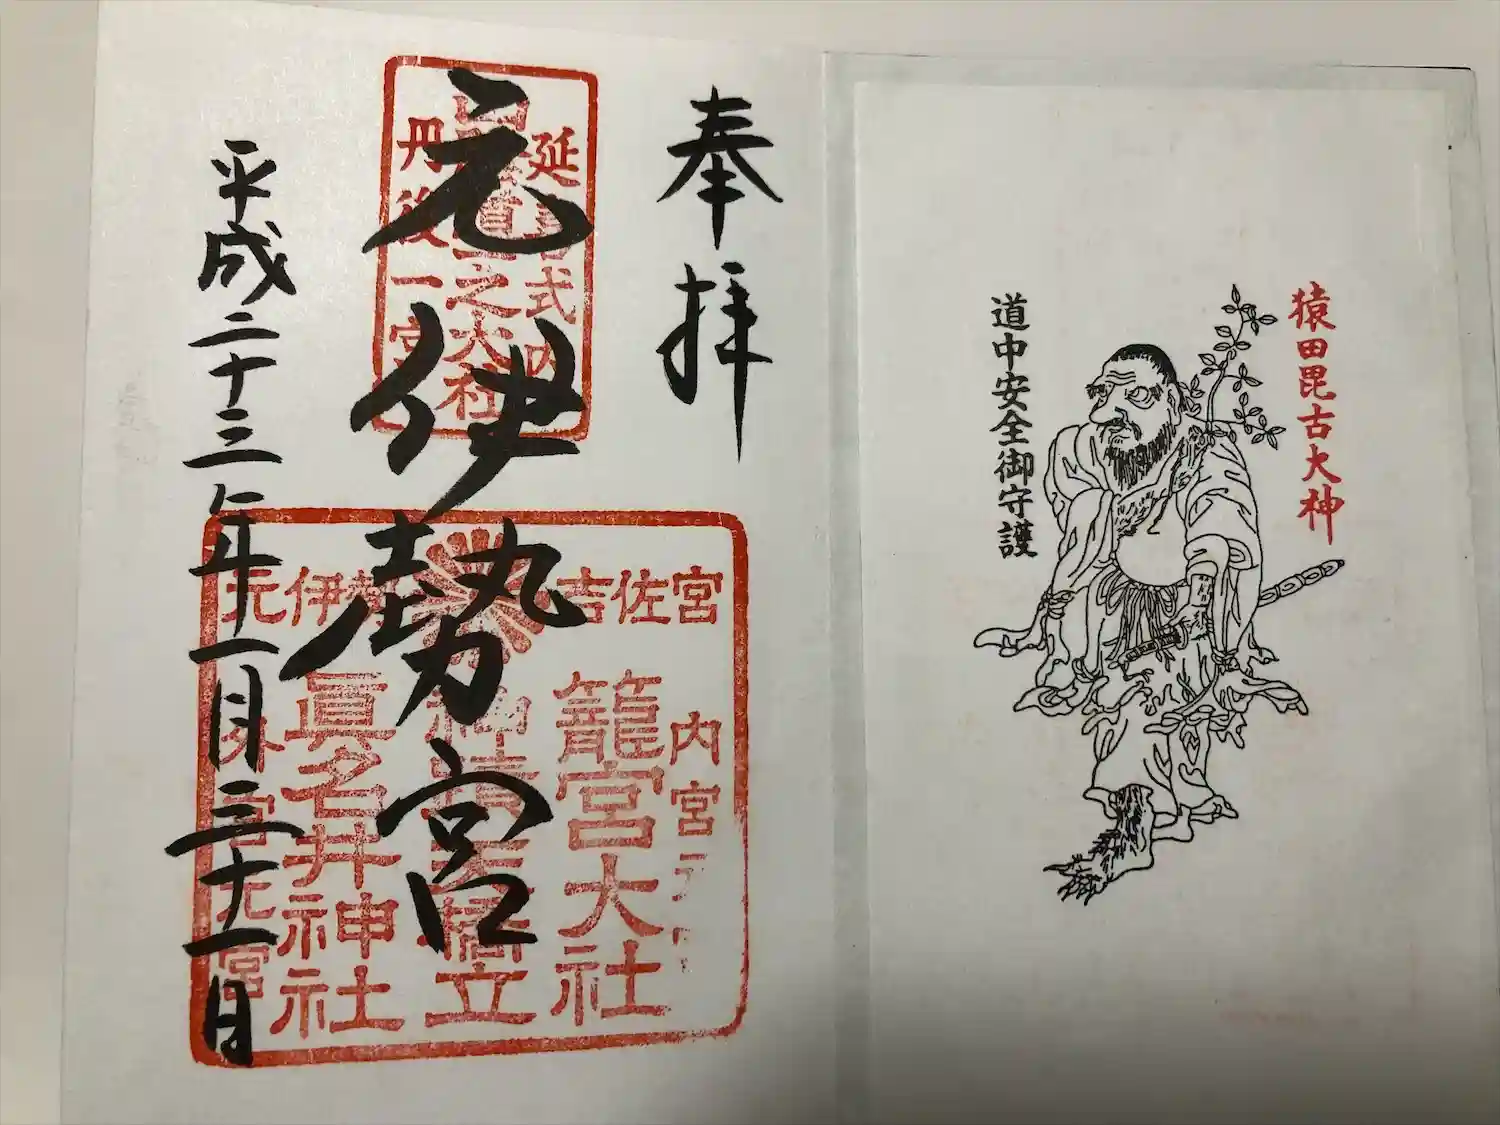 猿田毘古大神
道中安全御守護
奉拝
元伊勢宮
平成二十三年十一月三十一日
延喜式内
之大社
丹後一宮
元伊勢
吉佐宮
内宮元宮
籠宮大社
神詣天橋立
眞名井神社
外宮元宮